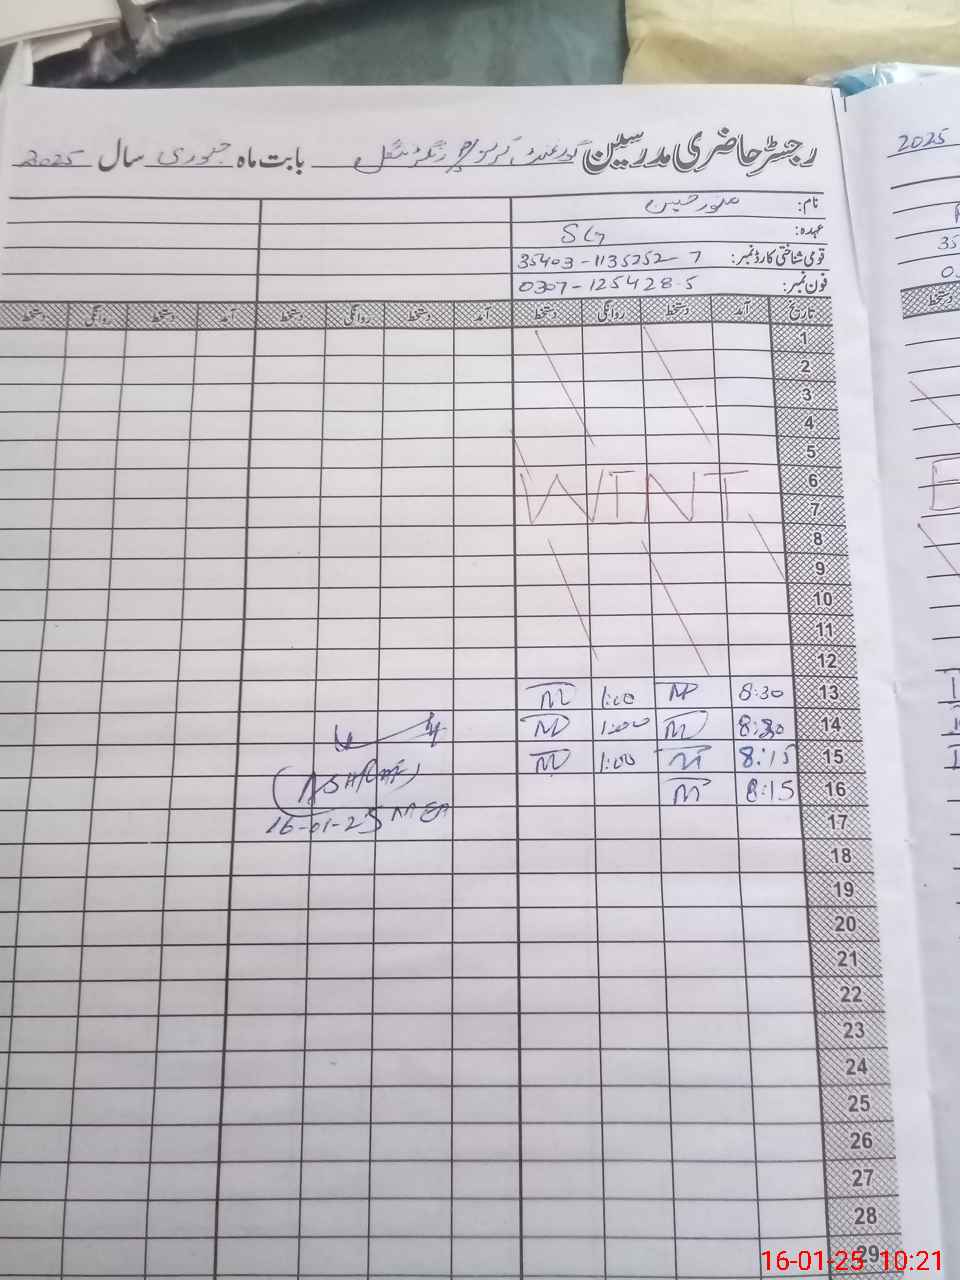 رجسٹر حاضری مدرسین گورنمنٹ بابت ماہ جنوری سال 2025
2025
نام: منور حسین
عہدہ:
قومی شناختی کارڈ نمبر: 35403-1135252-7
35
فون نمبر: 0307-1254285
تاریخ آمد دستخط روانگی دستخط آمد دستخط روانگی دستخط آمد دستخط روانگی دستخط
دستخط
1
2
3
4
5
6
WINT
7
8
9
10
11
12
13 8:30 M 1:00 M
14 8:30 M 1:00 M
15 8:15 M 1:00 M
16 8:15 M
17
16-01-25 MEA
18
19
20
21
22
23
24
25
26
27
28
29
16-01-25 10:21